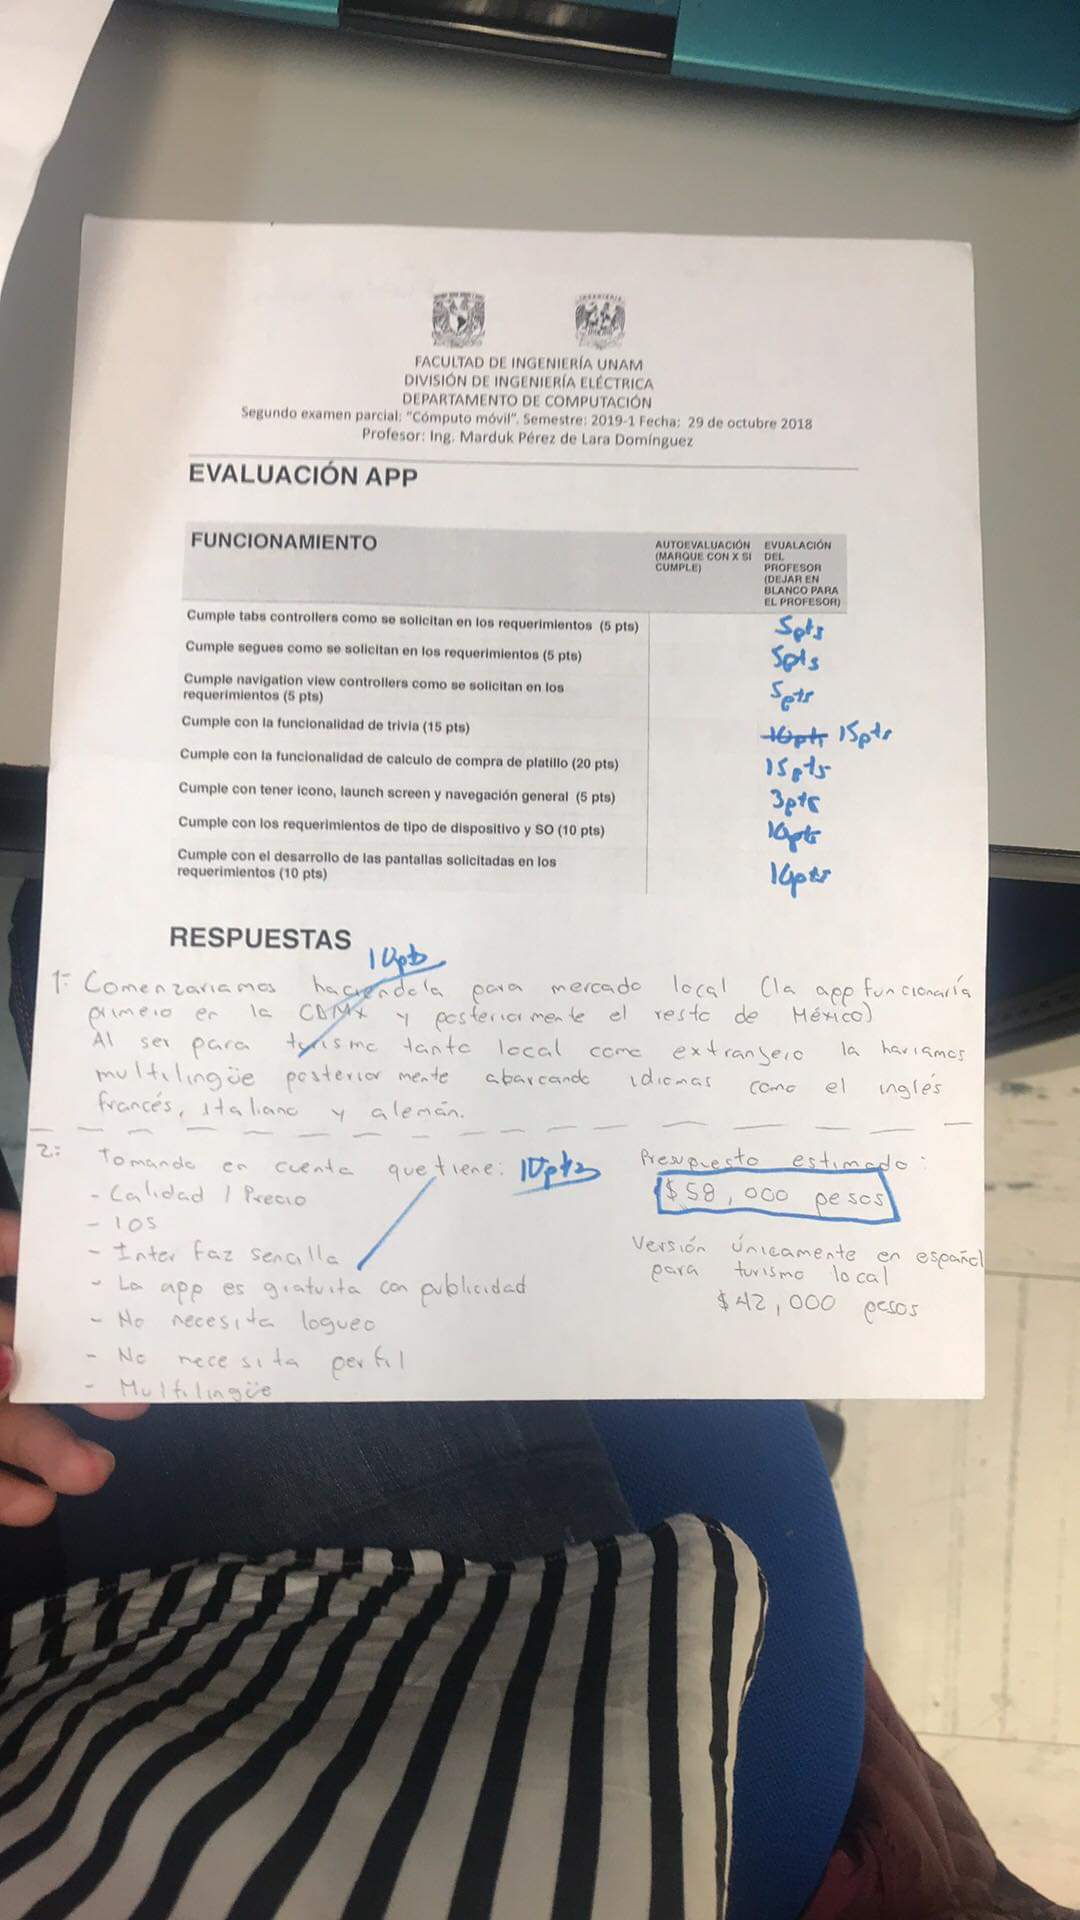 FACULTAD DE INGENIERÍA UNAM
DIVISIÓN DE INGENIERÍA ELÉCTRICA
DEPARTAMENTO DE COMPUTACIÓN
Segundo examen parcial: "Cómputo móvil". Semestre: 2019-1 Fecha: 29 de octubre 2018
Profesor: Ing. Marduk Pérez de Lara Domínguez
EVALUACIÓN APP
FUNCIONAMIENTO
AUTOEVALUACIÓN
(MARQUE CON X SI
CUMPLE)
EVUALACIÓN
DEL
PROFESOR
(DEJAR EN
BLANCO PARA
EL PROFESOR)
Cumple tabs controllers como se solicitan en los requerimientos (5 pts) 5pts
Cumple segues como se solicitan en los requerimientos (5 pts) 5pts
Cumple navigation view controllers como se solicitan en los
requerimientos (5 pts) 5pts
Cumple con la funcionalidad de trivia (15 pts) 10pts 15pts
Cumple con la funcionalidad de calculo de compra de platillo (20 pts) 15pts
Cumple con tener icono, launch screen y navegación general (5 pts) 3pts
Cumple con los requerimientos de tipo de dispositivo y SO (10 pts) 10pts
Cumple con el desarrollo de las pantallas solicitadas en los
requerimientos (10 pts) 10pts
RESPUESTAS
10pts
1.- Comenzaríamos haciendola para mercado local (la app funcionaría
primero en la CDMX y posteriormente el resto de México)
Al ser para turismo tanto local como extranjero la haríamos
multilingüe posteriormente abarcando idiomas como el inglés
francés, italiano y alemán.
2.- Tomando en cuenta que tiene: 10pts
- Calidad / Precio
- IOS
- Interfaz sencilla
- La app es gratuita con publicidad
- No necesita logueo
- No necesita perfil
- Multilingüe
Presupuesto estimado:
$58,000 pesos
Versión únicamente en español
para turismo local
$42,000 pesos